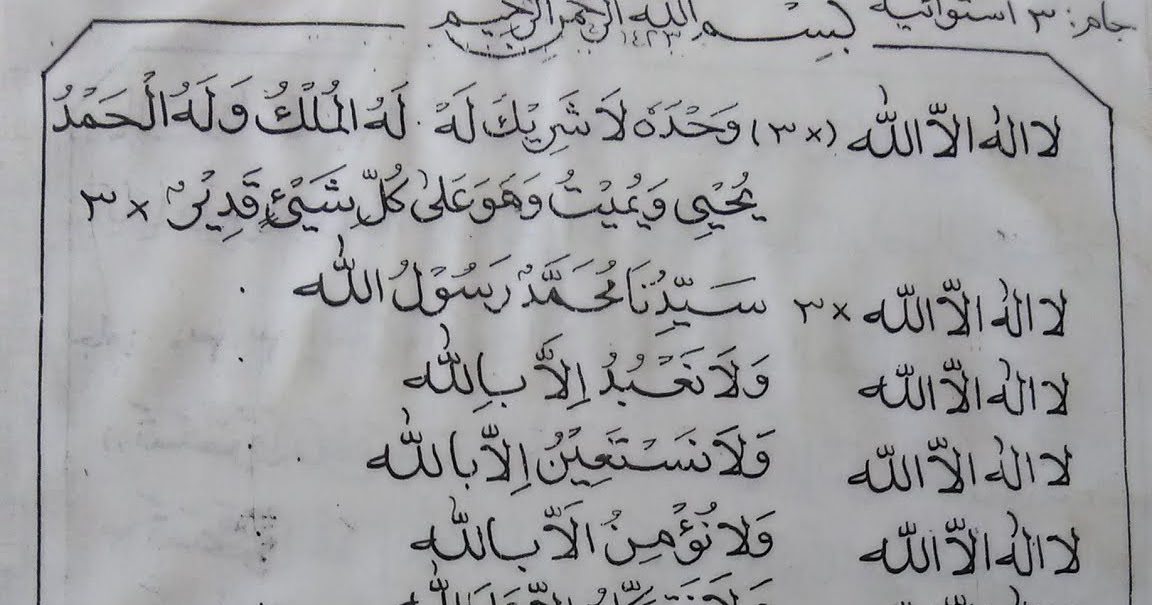 جام: ٣ استوائية
بِسْمِ اللهِ الرَّحْمٰنِ الرَّحِيْمِ
١٤٢٣
لا اله الاّ اللّٰه (×٣) وَحْدَهٗ لَا شَرِيْكَ لَهٗ. لَهُ الْمُلْكُ وَلَهُ الْحَمْدُ
يُحْيِى وَيُمِيْتُ وَهُوَ عَلٰى كُلِّ شَيْئٍ قَدِيْرٌ ×٣
لا اله الاّ اللّٰه ×٣ سَيِّدُنَا مُحَمَّدٌ رَسُوْلُ اللّٰه
لا اله الاّ اللّٰه وَلَا نَعْبُدُ اِلاَّ بِاللّٰه
لا اله الاّ اللّٰه وَلَا نَسْتَعِيْنُ اِلاَّ بِاللّٰه
لا اله الاّ اللّٰه وَلَا نُؤْمِنُ الاَّ بِاللّٰه